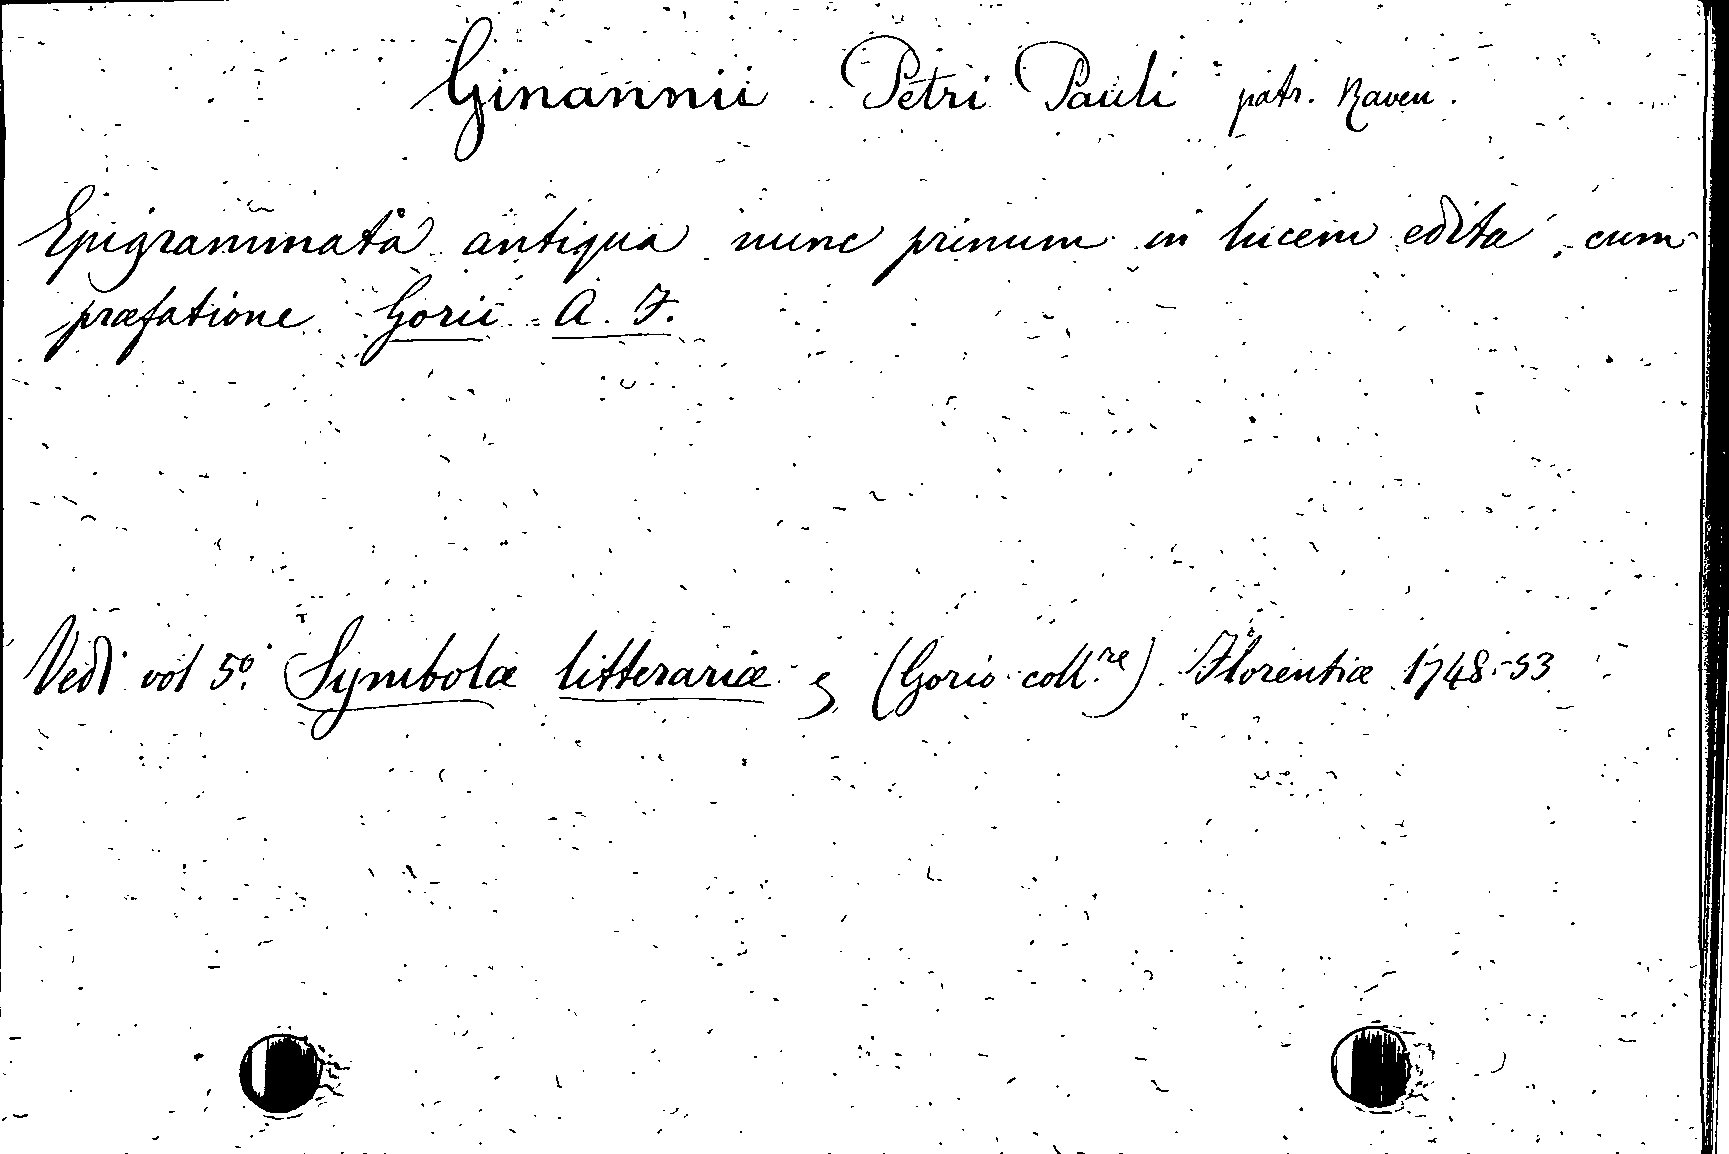 Ginannii Petri Pauli patr. Raven.
Epigrammata antiqua nunc primum in lucem edita, cum
præfatione Gorii A. F.
Vedi vol 5º. Symbolæ litterariæ (Gorio coll.re) Florentiæ 1748-53